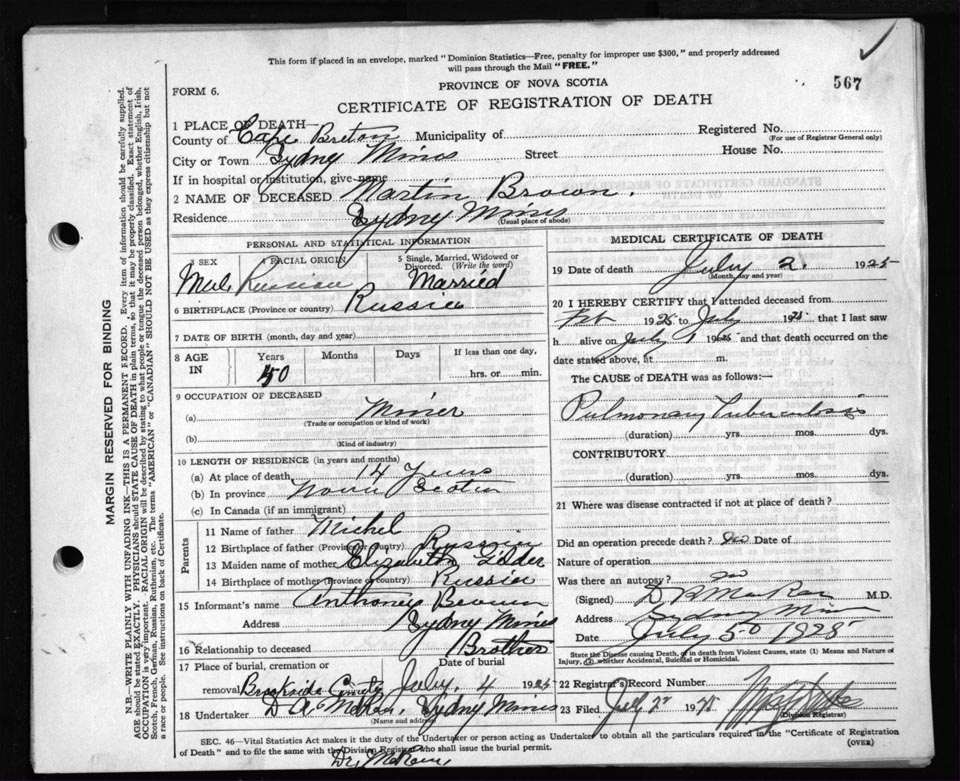 This form if placed in an envelope, marked "Dominion Statistics—Free, penalty for improper use $300," and properly addressed
will pass through the Mail "FREE."
PROVINCE OF NOVA SCOTIA
567
FORM 6.
CERTIFICATE OF REGISTRATION OF DEATH
1 PLACE OF DEATH—
County of Cape Breton Municipality of Registered No.
(For use of Registrar General only)
City or Town Sydney Mines Street House No.
If in hospital or Institution, give name
2 NAME OF DECEASED Martin Brown.
Residence Sydney Mines
(Usual place of abode)
PERSONAL AND STATISTICAL INFORMATION
3 SEX 4 RACIAL ORIGIN 5 Single, Married, Widowed or
Divorced. (Write the word)
Male Russian Married
6 BIRTHPLACE (Province or country) Russia
7 DATE OF BIRTH (month, day and year)
8 AGE IN Years Months Days If less than one day,
50 hrs. or min.
9 OCCUPATION OF DECEASED
(a) Miner
(Trade or occupation or kind of work)
(b)
(Kind of industry)
10 LENGTH OF RESIDENCE (in years and months)
(a) At place of death 14 Years
(b) In province Nova Scotia
(c) In Canada (if an immigrant)
Parents
11 Name of father Michel
12 Birthplace of father (Province or country) Russia
13 Maiden name of mother Elizabeth
14 Birthplace of mother (Province or country) Russia
15 Informant's name Brown
Address Sydney Mines
16 Relationship to deceased Brother
17 Place of burial, cremation or Date of burial
removal Brookside July 4 1925
18 Undertaker Sydney Mines
(Name and address)
MEDICAL CERTIFICATE OF DEATH
19 Date of death July 2. 1925
(Month, day and year)
20 I HEREBY CERTIFY that I attended deceased from
Feb 1925 to July 1925 that I last saw
h alive on July 1 1925 and that death occurred on the
date stated above, at m.
The CAUSE of DEATH was as follows:—
Pulmonary Tuberculosis
(duration) yrs. mos. dys.
CONTRIBUTORY
(duration) yrs. mos. dys.
21 Where was disease contracted if not at place of death?
Did an operation precede death? no Date of
Nature of operation
Was there an autopsy? no
(Signed) M.D.
Address Sydney Mines
Date July
State the Disease causing Death, or in death from Violent Causes, state (1) Means and Nature of
Injury, (2) whether Accidental, Suicidal or Homicidal.
22 Registrar's Record Number
23 Filed July 19
(Division Registrar)
SEC. 46—Vital Statistics Act makes it the duty of the Undertaker or person acting as Undertaker to obtain all the particulars required in the "Certificate of Registration
of Death" and to file the same with the Division Registrar who shall issue the burial permit.
(OVER)
MARGIN RESERVED FOR BINDING
N.B.—WRITE PLAINLY WITH UNFADING INK—THIS IS A PERMANENT RECORD. Every item of information should be carefully supplied.
AGE should be stated EXACTLY. PHYSICIANS should STATE CAUSE OF DEATH in plain terms, so that it may be properly classified. Exact statement of
OCCUPATION is very important. RACIAL ORIGIN will be described by stating to what people or tongue the deceased person belonged, whether English, Irish,
Scotch, French, German, Russian, Ruthenian, etc. The terms "AMERICAN" or "CANADIAN" SHOULD NOT BE USED as they express citizenship but not
a race or people. See instructions on back of Certificate.